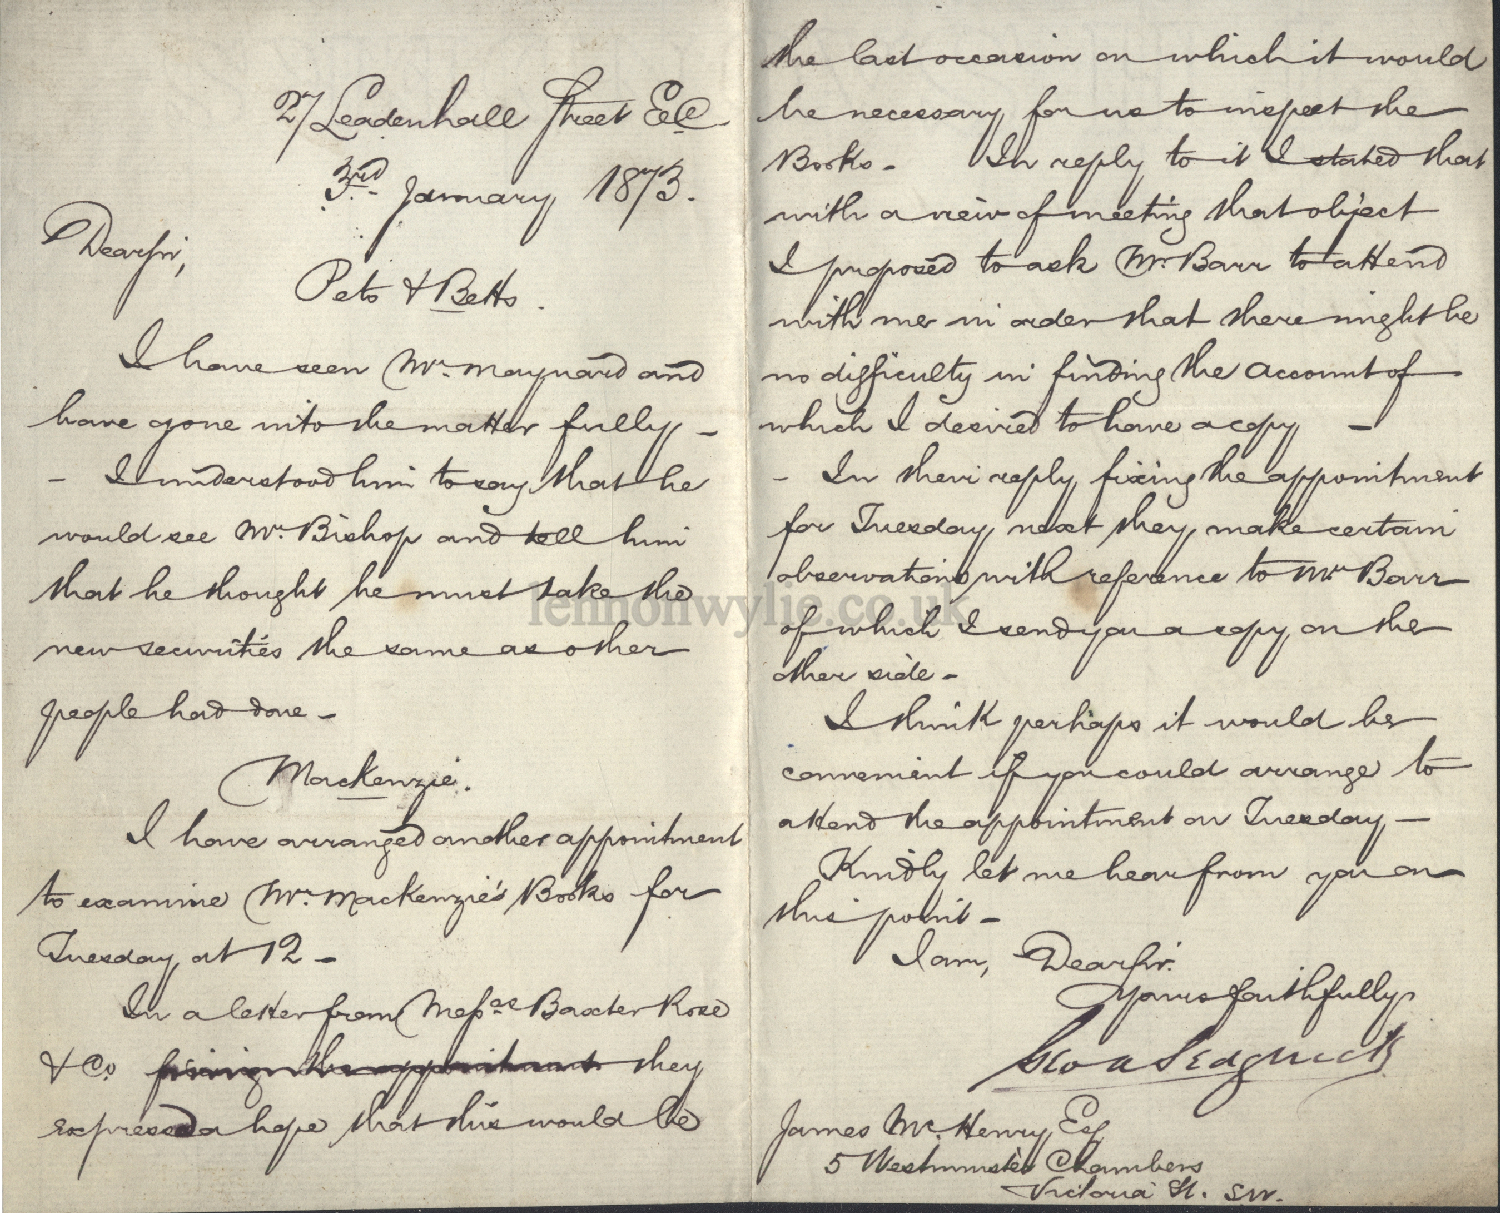 27 Leadenhall Street E.C.
3rd January 1873.
Dear Sir,
Peto & Betts.
I have seen Mr. Maynard and
have gone into the matter fully –
– I understood him to say that he
would see Mr. Bishop and tell him
that he thought he must take the
new securities the same as other
people had done –
MacKenzie.
I have arranged another appointment
to examine Mr. MacKenzie's Books for
Tuesday, at 12 –
In a letter from Messrs Baxter Rose
& Co fixing the appointment they
expressed a hope that this would be
the last occasion on which it would
be necessary for us to inspect the
Books – In reply to it I stated that
with a view of meeting that object
I proposed to ask Mr Barr to attend
with me in order that there might be
no difficulty in finding the account of
which I desired to have a copy –
– In their reply, fixing the appointment
for Tuesday next they make certain
observations with reference to Mr Barr
of which I send you a copy on the
other side –
I think perhaps it would be
convenient if you could arrange to
attend the appointment on Tuesday –
Kindly let me hear from you on
this point –
I am, Dear Sir.
Yours faithfully
Geo A Sedgwick
James Mc.Henry Esq
5 Westminster Chambers
Victoria St. S.W.
lennonwylie.co.uk